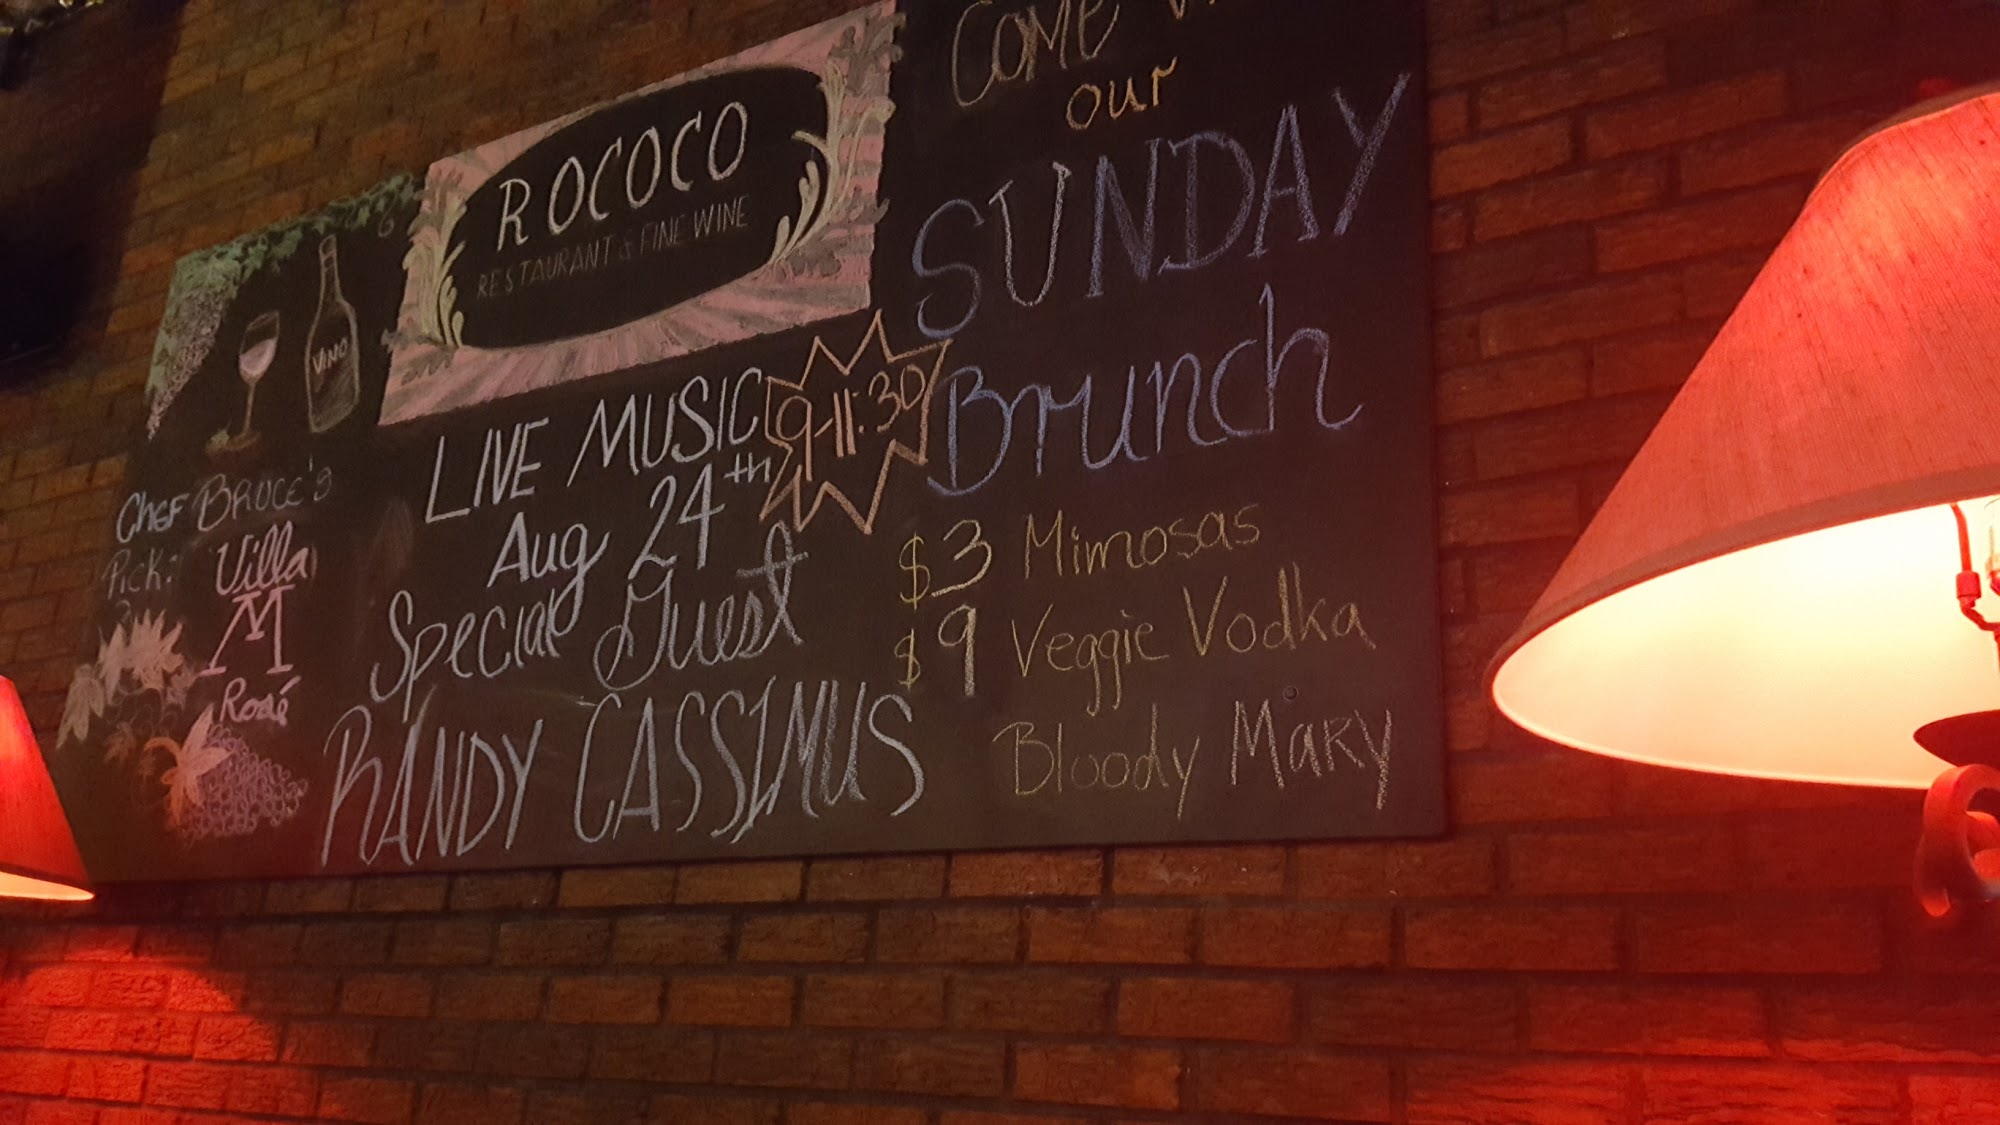 ROCOCO
RESTAURANT & FINE WINE
VINO
CHEF BRUCE'S
PICK:
Villa
M
Rosé
LIVE MUSIC
9-11:30
Aug 24th
Special Guest
RANDY CASSIMUS
COME
our
SUNDAY
Brunch
$3 Mimosas
$9 Veggie Vodka
Bloody MARY